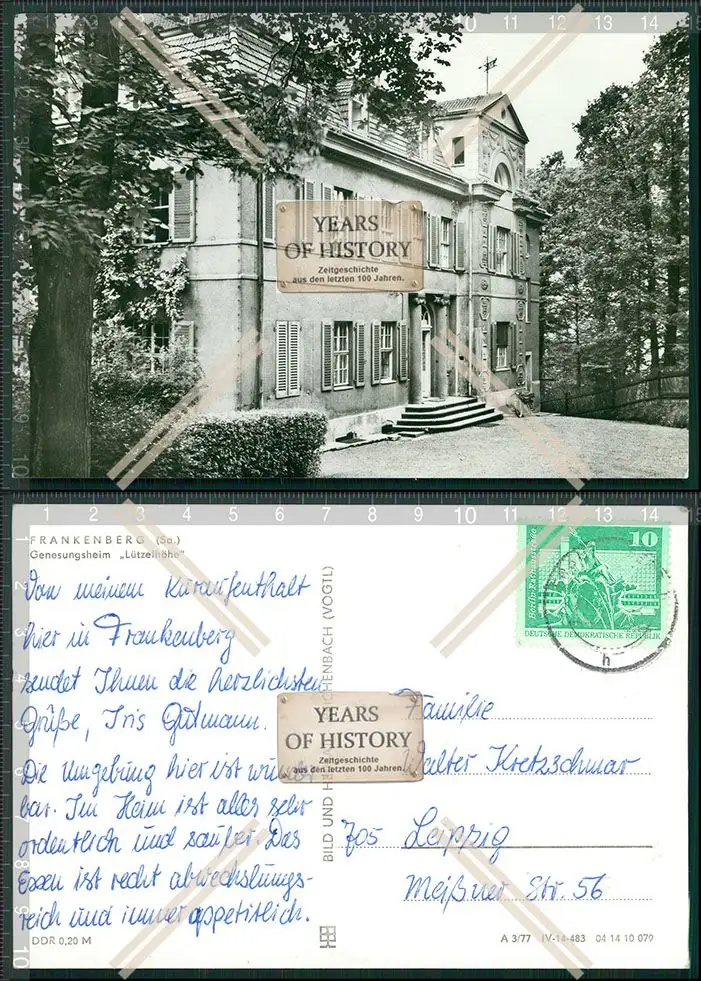 YEARS
OF HISTORY
Zeitgeschichte
aus den letzten 100 Jahren.
FRANKENBERG (Sa.)
Genesungsheim „Lützelhöhe"
Von meinem Kuraufenthalt
hier in Frankenberg
sendet Ihnen die herzlichsten
Grüße, Iris Gutmann.
Die Umgebung hier ist wunder
bar. Im Heim ist alles sehr
ordentlich und sauber. Das
Essen ist recht abwechslungs-
reich und immer appetitlich.
DDR 0,20 M
BILD UND
REICHENBACH (VOGTL)
YEARS
OF HISTORY
Zeitgeschichte
aus den letzten 100 Jahren.
10
Berlin-Rathausstraße
DEUTSCHE DEMOKRATISCHE REPUBLIK
h
Familie
Walter Kretzschmar
705 Leipzig
Meißner Str. 56
A 3/77 IV-14-483 04 14 10 079